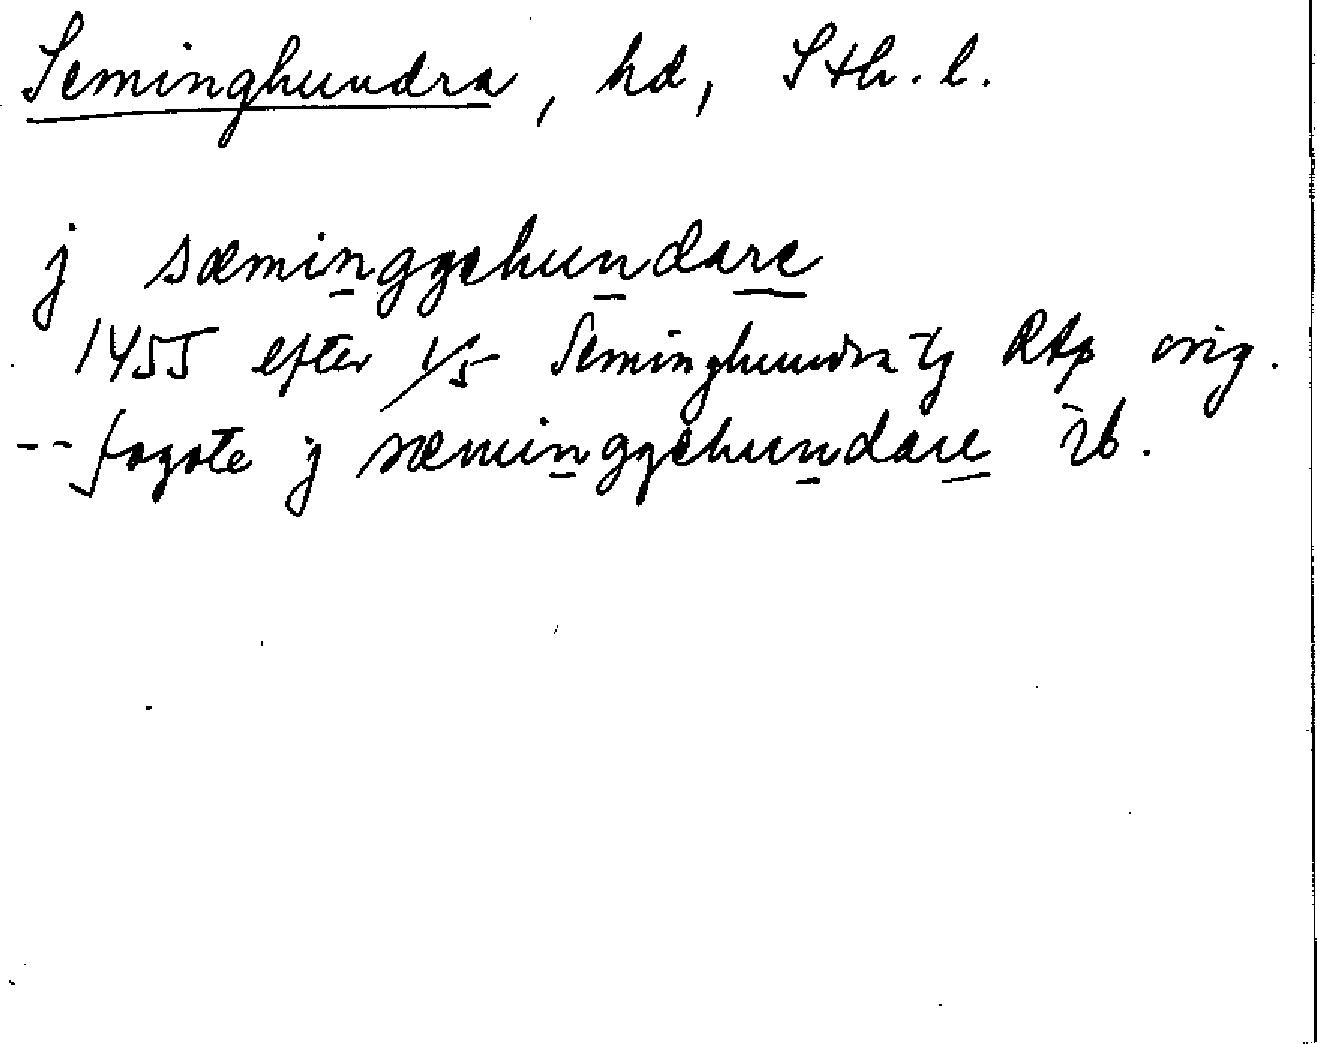 Seminghundra, hd, Sth. l.
j sæminggehundare
1455 efter 1/5 Seminghundra tg RAp orig.
-- fogote j sæminggehundare ib.